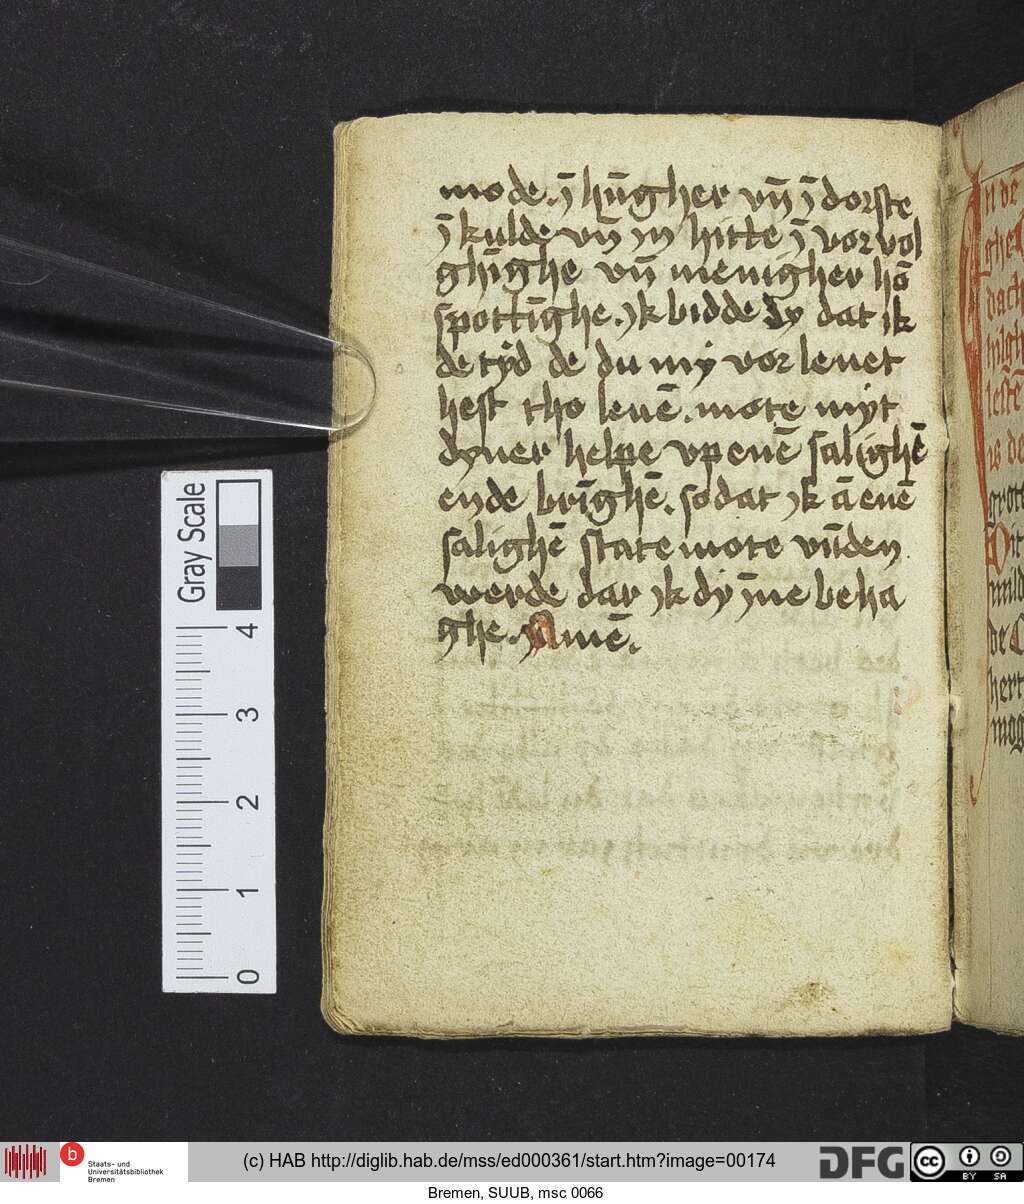 mode. ȳ hūgher vn̄ ȳ dorste
ȳ kulde vn̄ yn hitte ȳ vor vol
ghīghe vn̄ menigher hō
spottīghe. yk bidde dy dat ik
de tyd de du my vor lenet
hest tho leuē. mote myt
dyner helpe vp enē salighē
ende brīghē. so dat yk ā enē
salighē state mote vn̄den
werde dar ik dy ȳne beha
ghe. Amē.
n dē
ghe
dach
hilgh
lestē
is de
grote
Dit
mild
de
hert
mog
Gray Scale
4
3
2
1
0
b Staats- und
Universitätsbibliothek
Bremen
(c) HAB http://diglib.hab.de/mss/ed000361/start.htm?image=00174
DFG
cc BY SA
Bremen, SUUB, msc 0066